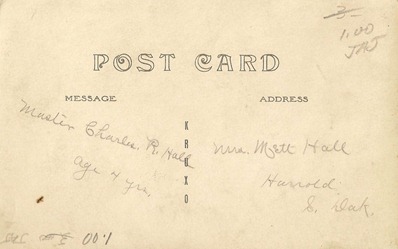 3-
1.00
POST CARD
MESSAGE
ADDRESS
Master Charles R. Hall
age 4 yrs.
KRUXO
Mrs. Mett Hall
Harrold
S. Dak.
00.1